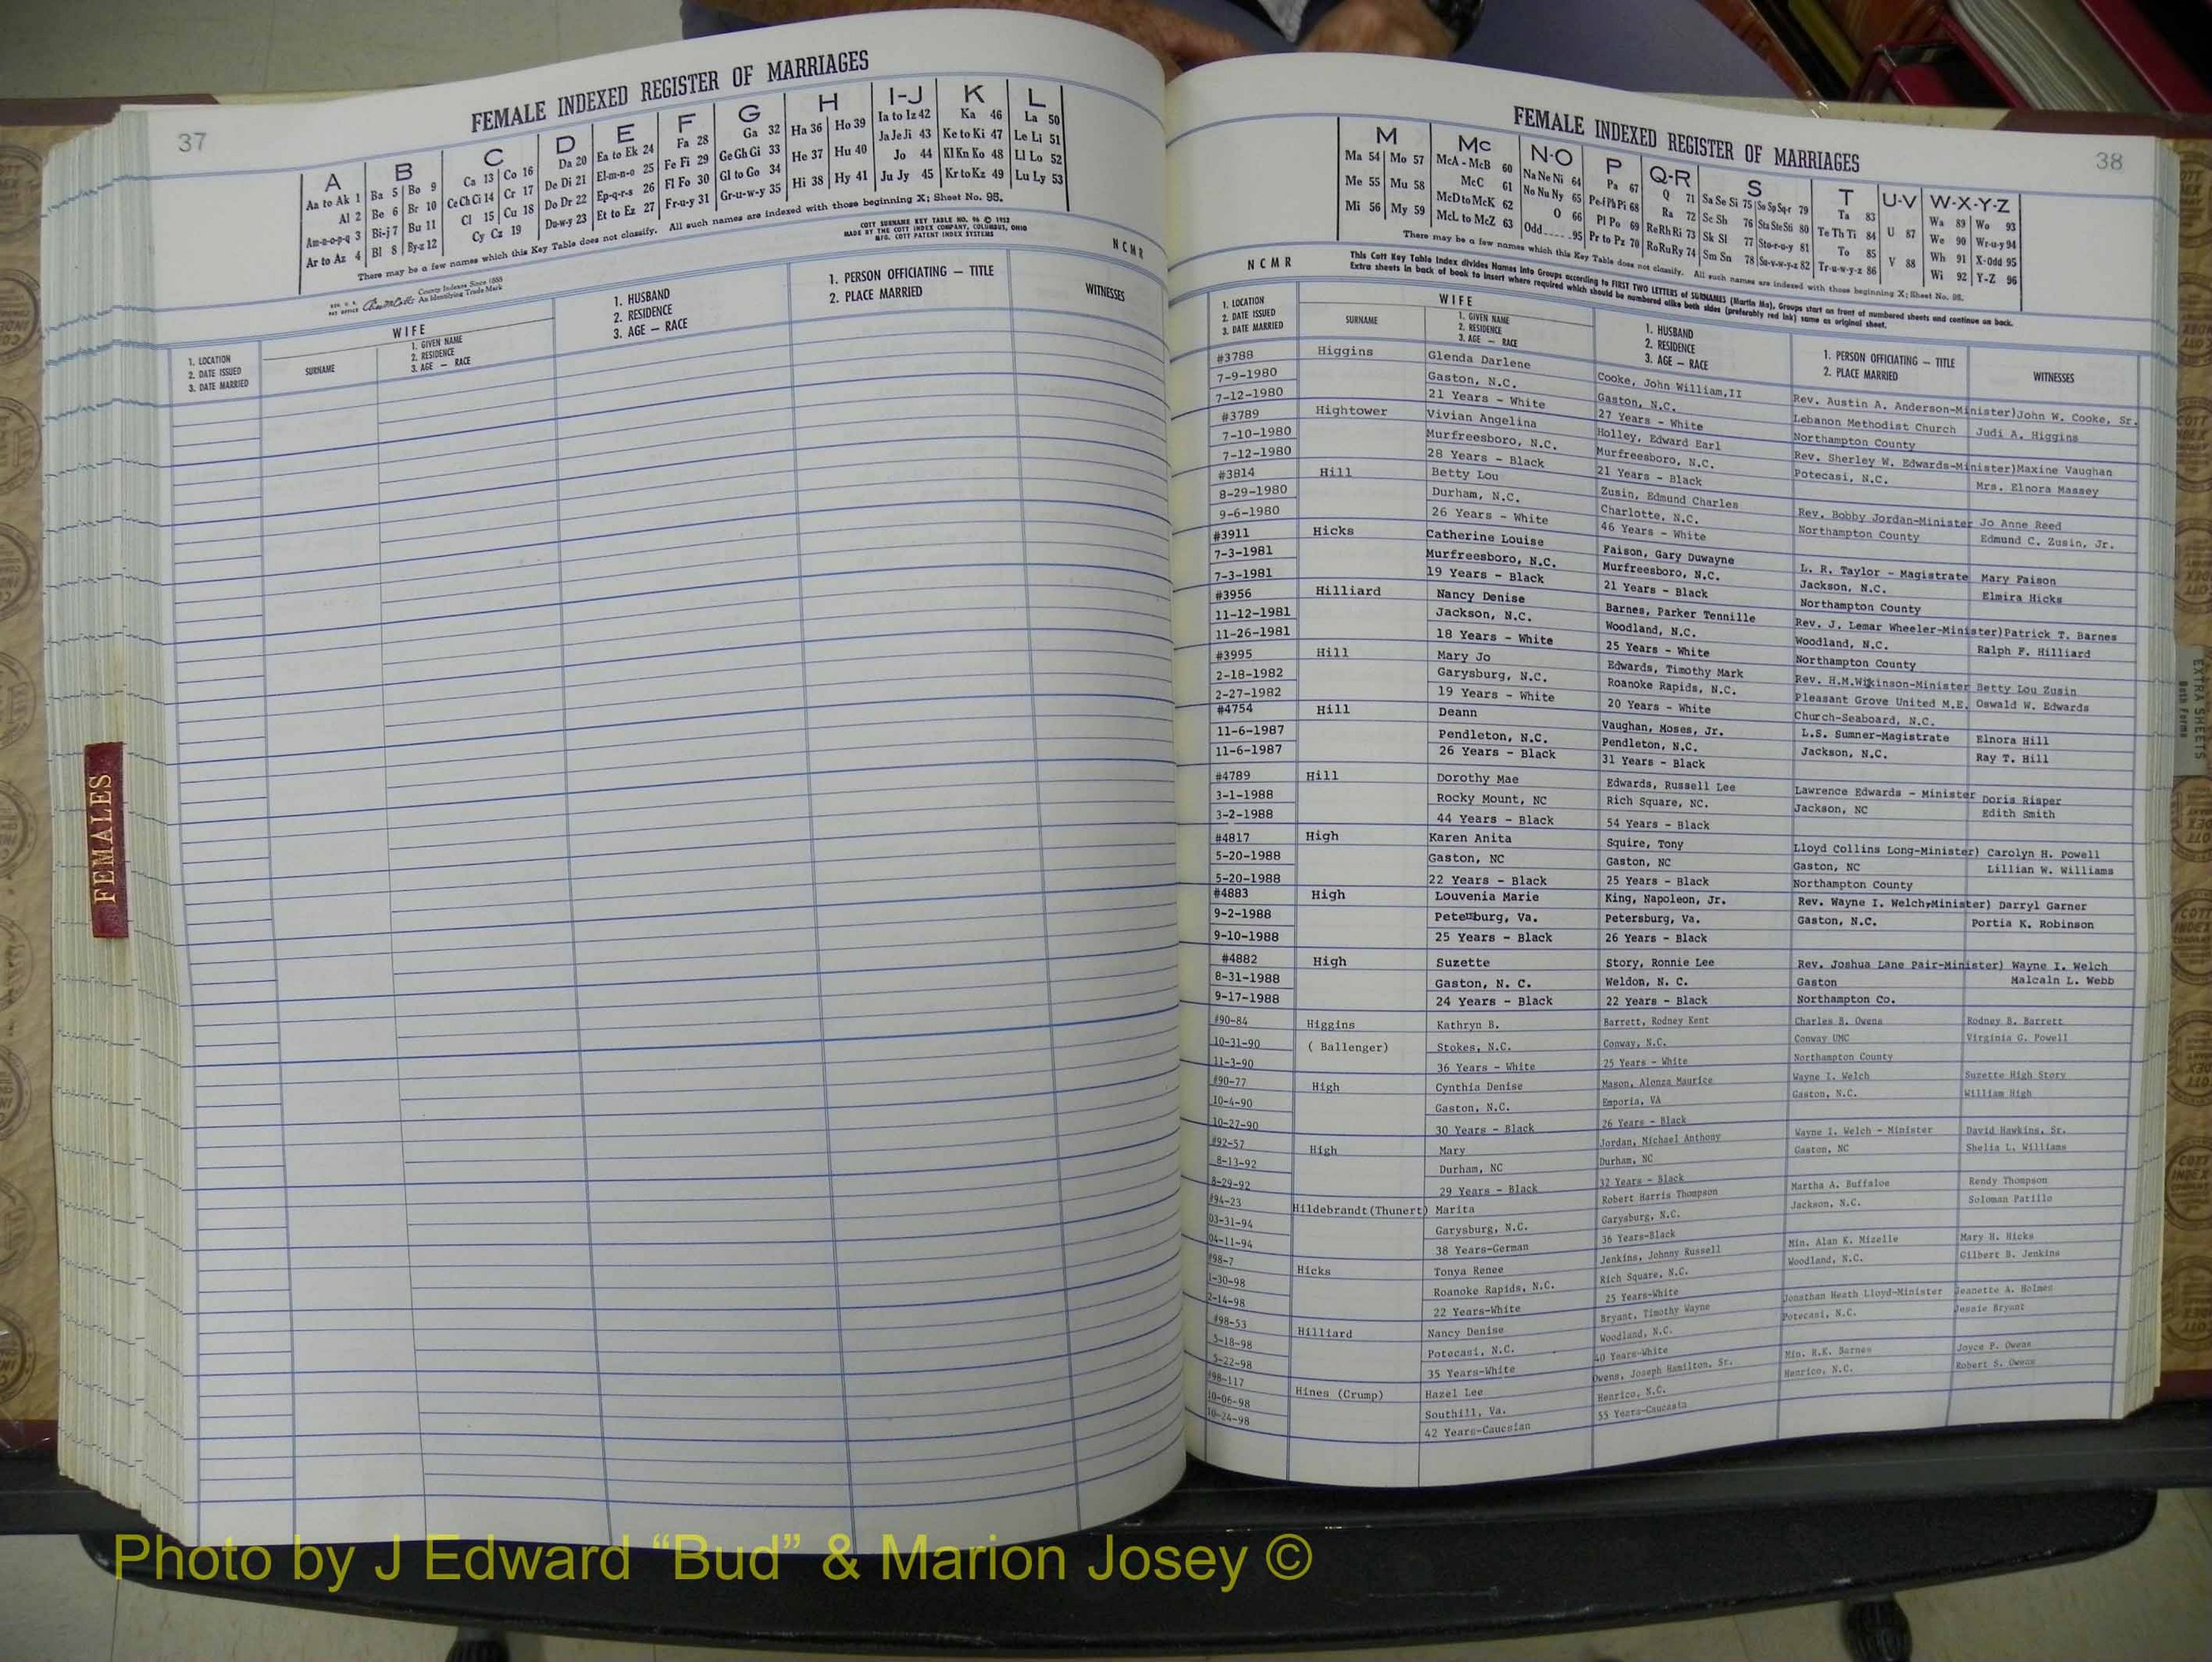 37
FEMALE INDEXED REGISTER OF MARRIAGES
A B C D E F G H I-J K L
Aa to Ak 1 Ba 5 Bo 9 Ca 13 Co 16 Da 20 Ea to Ek 24 Fa 28 Ga 32 Ha 36 Ho 39 Ia to Iz 42 Ka 46 La 50
Al 2 Be 6 Br 10 Ce Ch Ci 14 Cr 17 De Di 21 El-m-n-o 25 Fe Fi 29 Ge Gh Gi 33 He 37 Hu 40 Ja Je Ji 43 Ke to Ki 47 Le Li 51
Am-n-o-p-q 3 Bi-j 7 Bu 11 Cl 15 Cu 18 Do Dr 22 Ep-q-r-s 26 Fl Fo 30 Gl to Go 34 Hi 38 Hy 41 Jo 44 Kl Kn Ko 48 Ll Lo 52
Ar to Az 4 Bl 8 By-z 12 Cy Cz 19 Du-w-y 23 Et to Ez 27 Fr-u-y 31 Gr-u-w-y 35 Ju Jy 45 Kr to Kz 49 Lu Ly 53
There may be a few names which this Key Table does not classify. All such names are indexed with those beginning X; Sheet No. 95.
COTT SURNAME KEY TABLE NO. 96 © 1952
MADE BY THE COTT INDEX COMPANY, COLUMBUS, OHIO
MFG. COTT PATENT INDEX SYSTEMS
County Indexes Since 1888
An Identifying Trade Mark
N C M R
1. LOCATION
2. DATE ISSUED
3. DATE MARRIED
WIFE
SURNAME
1. GIVEN NAME
2. RESIDENCE
3. AGE — RACE
1. HUSBAND
2. RESIDENCE
3. AGE — RACE
1. PERSON OFFICIATING — TITLE
2. PLACE MARRIED
WITNESSES
FEMALES
FEMALE INDEXED REGISTER OF MARRIAGES
38
M Mc N-O P Q-R S T U-V W-X-Y-Z
Ma 54 Mo 57 McA - McB 60 Na Ne Ni 64 Pa 67 Q 71 Sa Se Si 75 So Sp Sq-r 79 Ta 83 U 87 Wa 89 Wo 93
Me 55 Mu 58 McC 61 No Nu Ny 65 Pe-f Ph Pi 68 Ra 72 Sc Sh 76 Sta Ste Sti 80 Te Th Ti 84 V 88 We 90 Wr-u-y 94
Mi 56 My 59 McD to McK 62 O 66 Pl Po 69 Re Rh Ri 73 Sk Sl 77 Sto-r-u-y 81 To 85 Wh 91 X-Odd 95
McL to McZ 63 Odd 95 Pr to Pz 70 Ro Ru Ry 74 Sm Sn 78 Su-v-w-y-z 82 Tr-u-w-y-z 86 Wi 92 Y-Z 96
There may be a few names which this Key Table does not classify. All such names are indexed with those beginning X; Sheet No. 95.
This Cott Key Table Index divides Names into Groups according to FIRST TWO LETTERS of SURNAMES (Martin Ma). Groups start on front of numbered sheets and continue on back.
Extra sheets in back of book to insert where required which should be numbered alike both sides (preferably red ink) same as original sheet.
N C M R
1. LOCATION
2. DATE ISSUED
3. DATE MARRIED
WIFE
SURNAME
1. GIVEN NAME
2. RESIDENCE
3. AGE — RACE
1. HUSBAND
2. RESIDENCE
3. AGE — RACE
1. PERSON OFFICIATING — TITLE
2. PLACE MARRIED
WITNESSES
#3788 Higgins Glenda Darlene Cooke, John William,II Rev. Austin A. Anderson-Minister)John W. Cooke, Sr.
7-9-1980 Gaston, N.C. Gaston, N.C. Lebanon Methodist Church Judi A. Higgins
7-12-1980 21 Years - White 27 Years - White Northampton County
#3789 Hightower Vivian Angelina Holley, Edward Earl Rev. Sherley W. Edwards-Minister)Maxine Vaughan
7-10-1980 Murfreesboro, N.C. Murfreesboro, N.C. Potecasi, N.C. Mrs. Elnora Massey
7-12-1980 28 Years - Black 21 Years - Black
#3814 Hill Betty Lou Zusin, Edmund Charles Rev. Bobby Jordan-Minister Jo Anne Reed
8-29-1980 Durham, N.C. Charlotte, N.C. Northampton County Edmund C. Zusin, Jr.
9-6-1980 26 Years - White 46 Years - White
#3911 Hicks Catherine Louise Faison, Gary Duwayne L. R. Taylor - Magistrate Mary Faison
7-3-1981 Murfreesboro, N.C. Murfreesboro, N.C. Jackson, N.C. Elmira Hicks
7-3-1981 19 Years - Black 21 Years - Black Northampton County
#3956 Hilliard Nancy Denise Barnes, Parker Tennille Rev. J. Lemar Wheeler-Minister)Patrick T. Barnes
11-12-1981 Jackson, N.C. Woodland, N.C. Woodland, N.C. Ralph F. Hilliard
11-26-1981 18 Years - White 25 Years - White Northampton County
#3995 Hill Mary Jo Edwards, Timothy Mark Rev. H.M.Wikinson-Minister Betty Lou Zusin
2-18-1982 Garysburg, N.C. Roanoke Rapids, N.C. Pleasant Grove United M.E. Oswald W. Edwards
2-27-1982 19 Years - White 20 Years - White Church-Seaboard, N.C.
#4754 Hill Deann Vaughan, Moses, Jr. L.S. Sumner-Magistrate Elnora Hill
11-6-1987 Pendleton, N.C. Pendleton, N.C. Jackson, N.C. Ray T. Hill
11-6-1987 26 Years - Black 31 Years - Black
#4789 Hill Dorothy Mae Edwards, Russell Lee Lawrence Edwards - Minister Doris Risper
3-1-1988 Rocky Mount, NC Rich Square, NC. Jackson, NC Edith Smith
3-2-1988 44 Years - Black 54 Years - Black
#4817 High Karen Anita Squire, Tony Lloyd Collins Long-Minister) Carolyn H. Powell
5-20-1988 Gaston, NC Gaston, NC Gaston, NC Lillian W. Williams
5-20-1988 22 Years - Black 25 Years - Black Northampton County
#4883 High Louvenia Marie King, Napoleon, Jr. Rev. Wayne I. Welch,Minister) Darryl Garner
9-2-1988 Petersburg, Va. Petersburg, Va. Gaston, N.C. Portia K. Robinson
9-10-1988 25 Years - Black 26 Years - Black
#4882 High Suzette Story, Ronnie Lee Rev. Joshua Lane Pair-Minister) Wayne I. Welch
8-31-1988 Gaston, N. C. Weldon, N. C. Gaston Malcaln L. Webb
9-17-1988 24 Years - Black 22 Years - Black Northampton Co.
#90-84 Higgins Kathryn B. Barrett, Rodney Kent Charles B. Owens Rodney B. Barrett
10-31-90 ( Ballenger) Stokes, N.C. Conway, N.C. Conway UMC Virginia G. Powell
11-3-90 36 Years - White 25 Years - White Northampton County
#90-77 High Cynthia Denise Mason, Alonza Maurice Wayne I. Welch Suzette High Story
10-4-90 Gaston, N.C. Emporia, VA Gaston, N.C. William High
10-27-90 30 Years - Black 26 Years - Black
#92-57 High Mary Jordan, Michael Anthony Wayne I. Welch - Minister David Hawkins, Sr.
8-13-92 Durham, NC Durham, NC Gaston, NC Shelia L. Williams
8-29-92 29 Years - Black 32 Years - Black
#94-23 Hildebrandt(Thunert) Marita Robert Harris Thompson Martha A. Buffaloe Rendy Thompson
03-31-94 Garysburg, N.C. Garysburg, N.C. Jackson, N.C. Soloman Patillo
04-11-94 38 Years-German 36 Years-Black
#98-7 Hicks Tonya Renee Jenkins, Johnny Russell Min. Alan K. Mizelle Mary H. Hicks
1-30-98 Roanoke Rapids, N.C. Rich Square, N.C. Woodland, N.C. Gilbert B. Jenkins
2-14-98 22 Years-White 25 Years-White
#98-53 Hilliard Nancy Denise Bryant, Timothy Wayne Jonathan Heath Lloyd-Minister Jeanette A. Holmes
5-18-98 Potecasi, N.C. Woodland, N.C. Potecasi, N.C. Jessie Bryant
5-22-98 35 Years-White 40 Years-White
#98-117 Hines (Crump) Hazel Lee Owens, Joseph Hamilton, Sr. Min. R.K. Barnes Joyce P. Owens
10-06-98 Southill, Va. Henrico, N.C. Henrico, N.C. Robert S. Owens
10-24-98 42 Years-Caucsian 55 Years-Caucasia
EXTRA SHEETS
Photo by J Edward “Bud” & Marion Josey ©